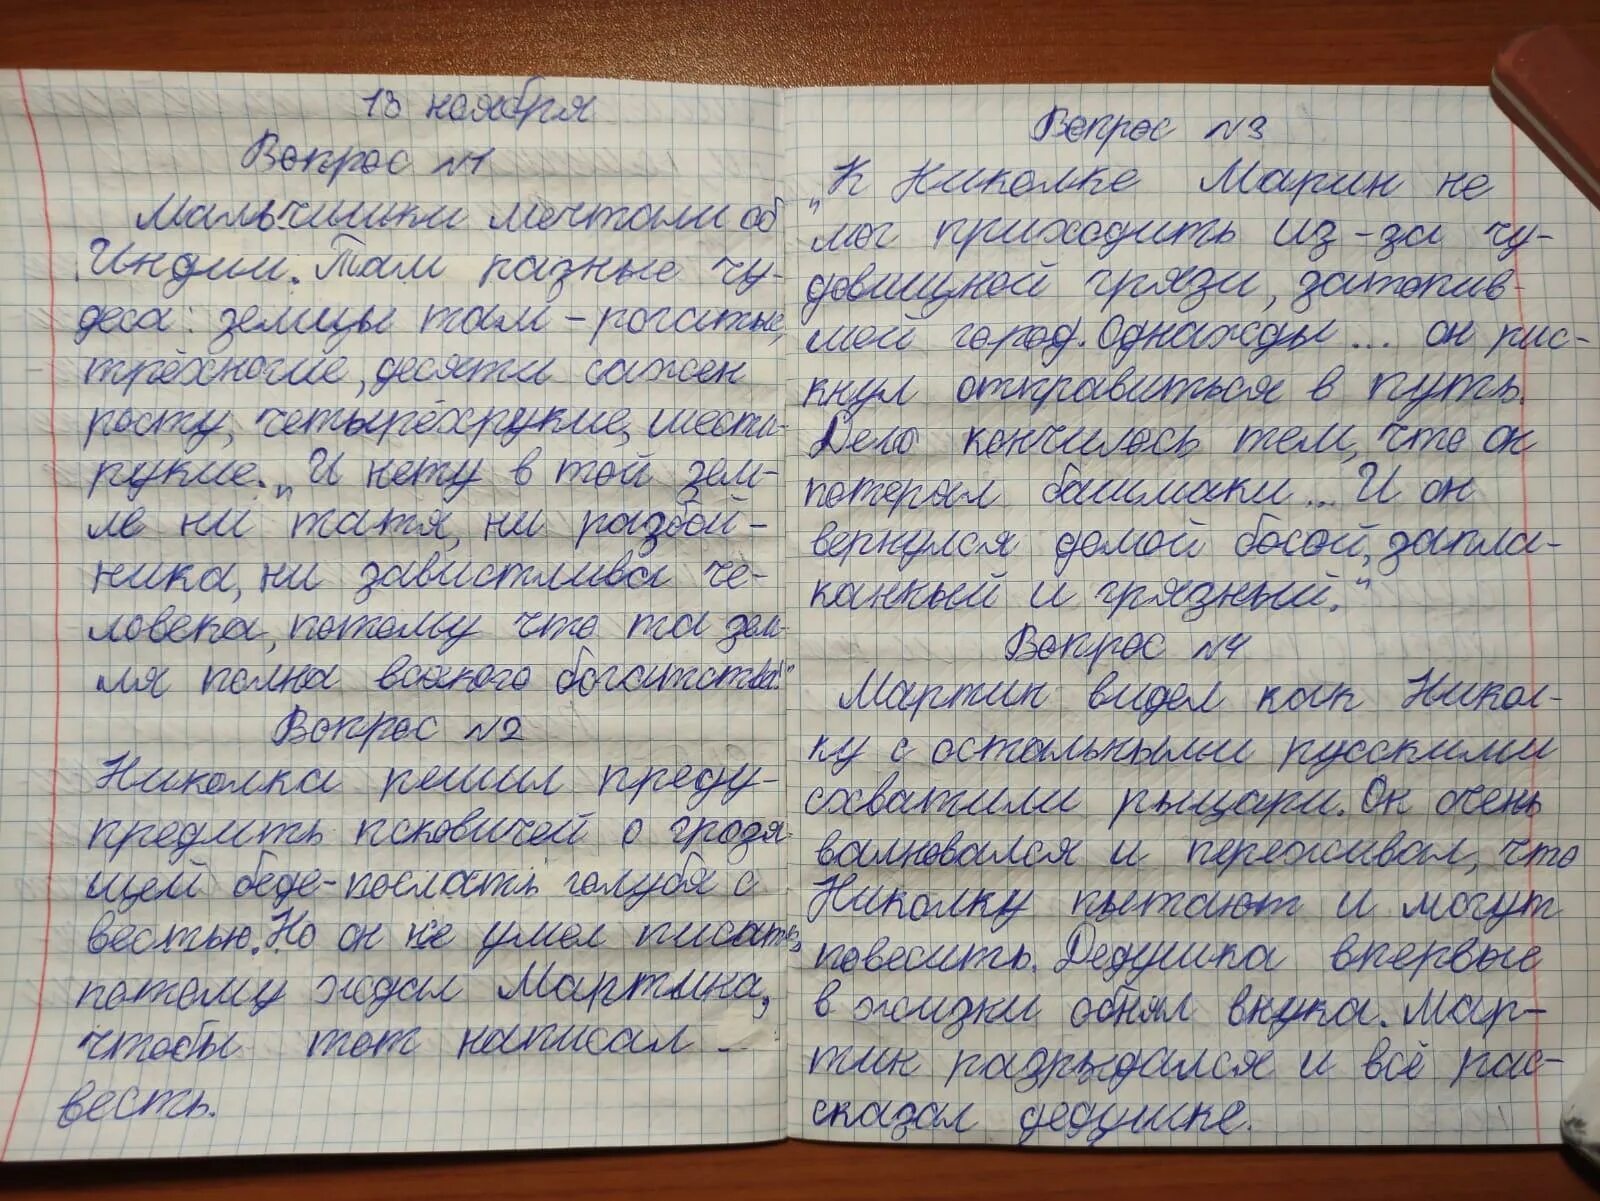 13 ноября
Вопрос №1
Мальчишки мечтали об
Индии. Там разные чу-
деса: земцы там - рогатые,
трёхногие, десяти сажен
росту, четырёхрукие, шести-
рукие. „И нету в той зем-
ле ни татя, ни разбой-
ника, ни завистлива че-
ловека, потому что та зем-
ля полна всякого богатства."
Вопрос №2
Николка решил преду-
предить псковичей о грозя-
щей беде - послать голубя с
вестью. Но он не умел писать,
потому ждал Мартина,
чтобы тот написал
весть.
Вопрос №3
„К Николке Марин не
мог приходить из-за чу-
довищной грязи, затопив-
шей город. Однажды ... он рис-
кнул отправиться в путь.
Дело кончилось тем, что он
потерял башмаки ... И он
вернулся домой босой, запла-
канный и грязный."
Вопрос №4
Мартин видел как Никол-
ку с остальными русскими
схватили рыцари. Он очень
валновался и переживал, что
Николку пытают и могут
повесить. Дедушка впервые
в жизни обнял внука. Мар-
тин разрыдался и всё рас-
сказал дедушке.